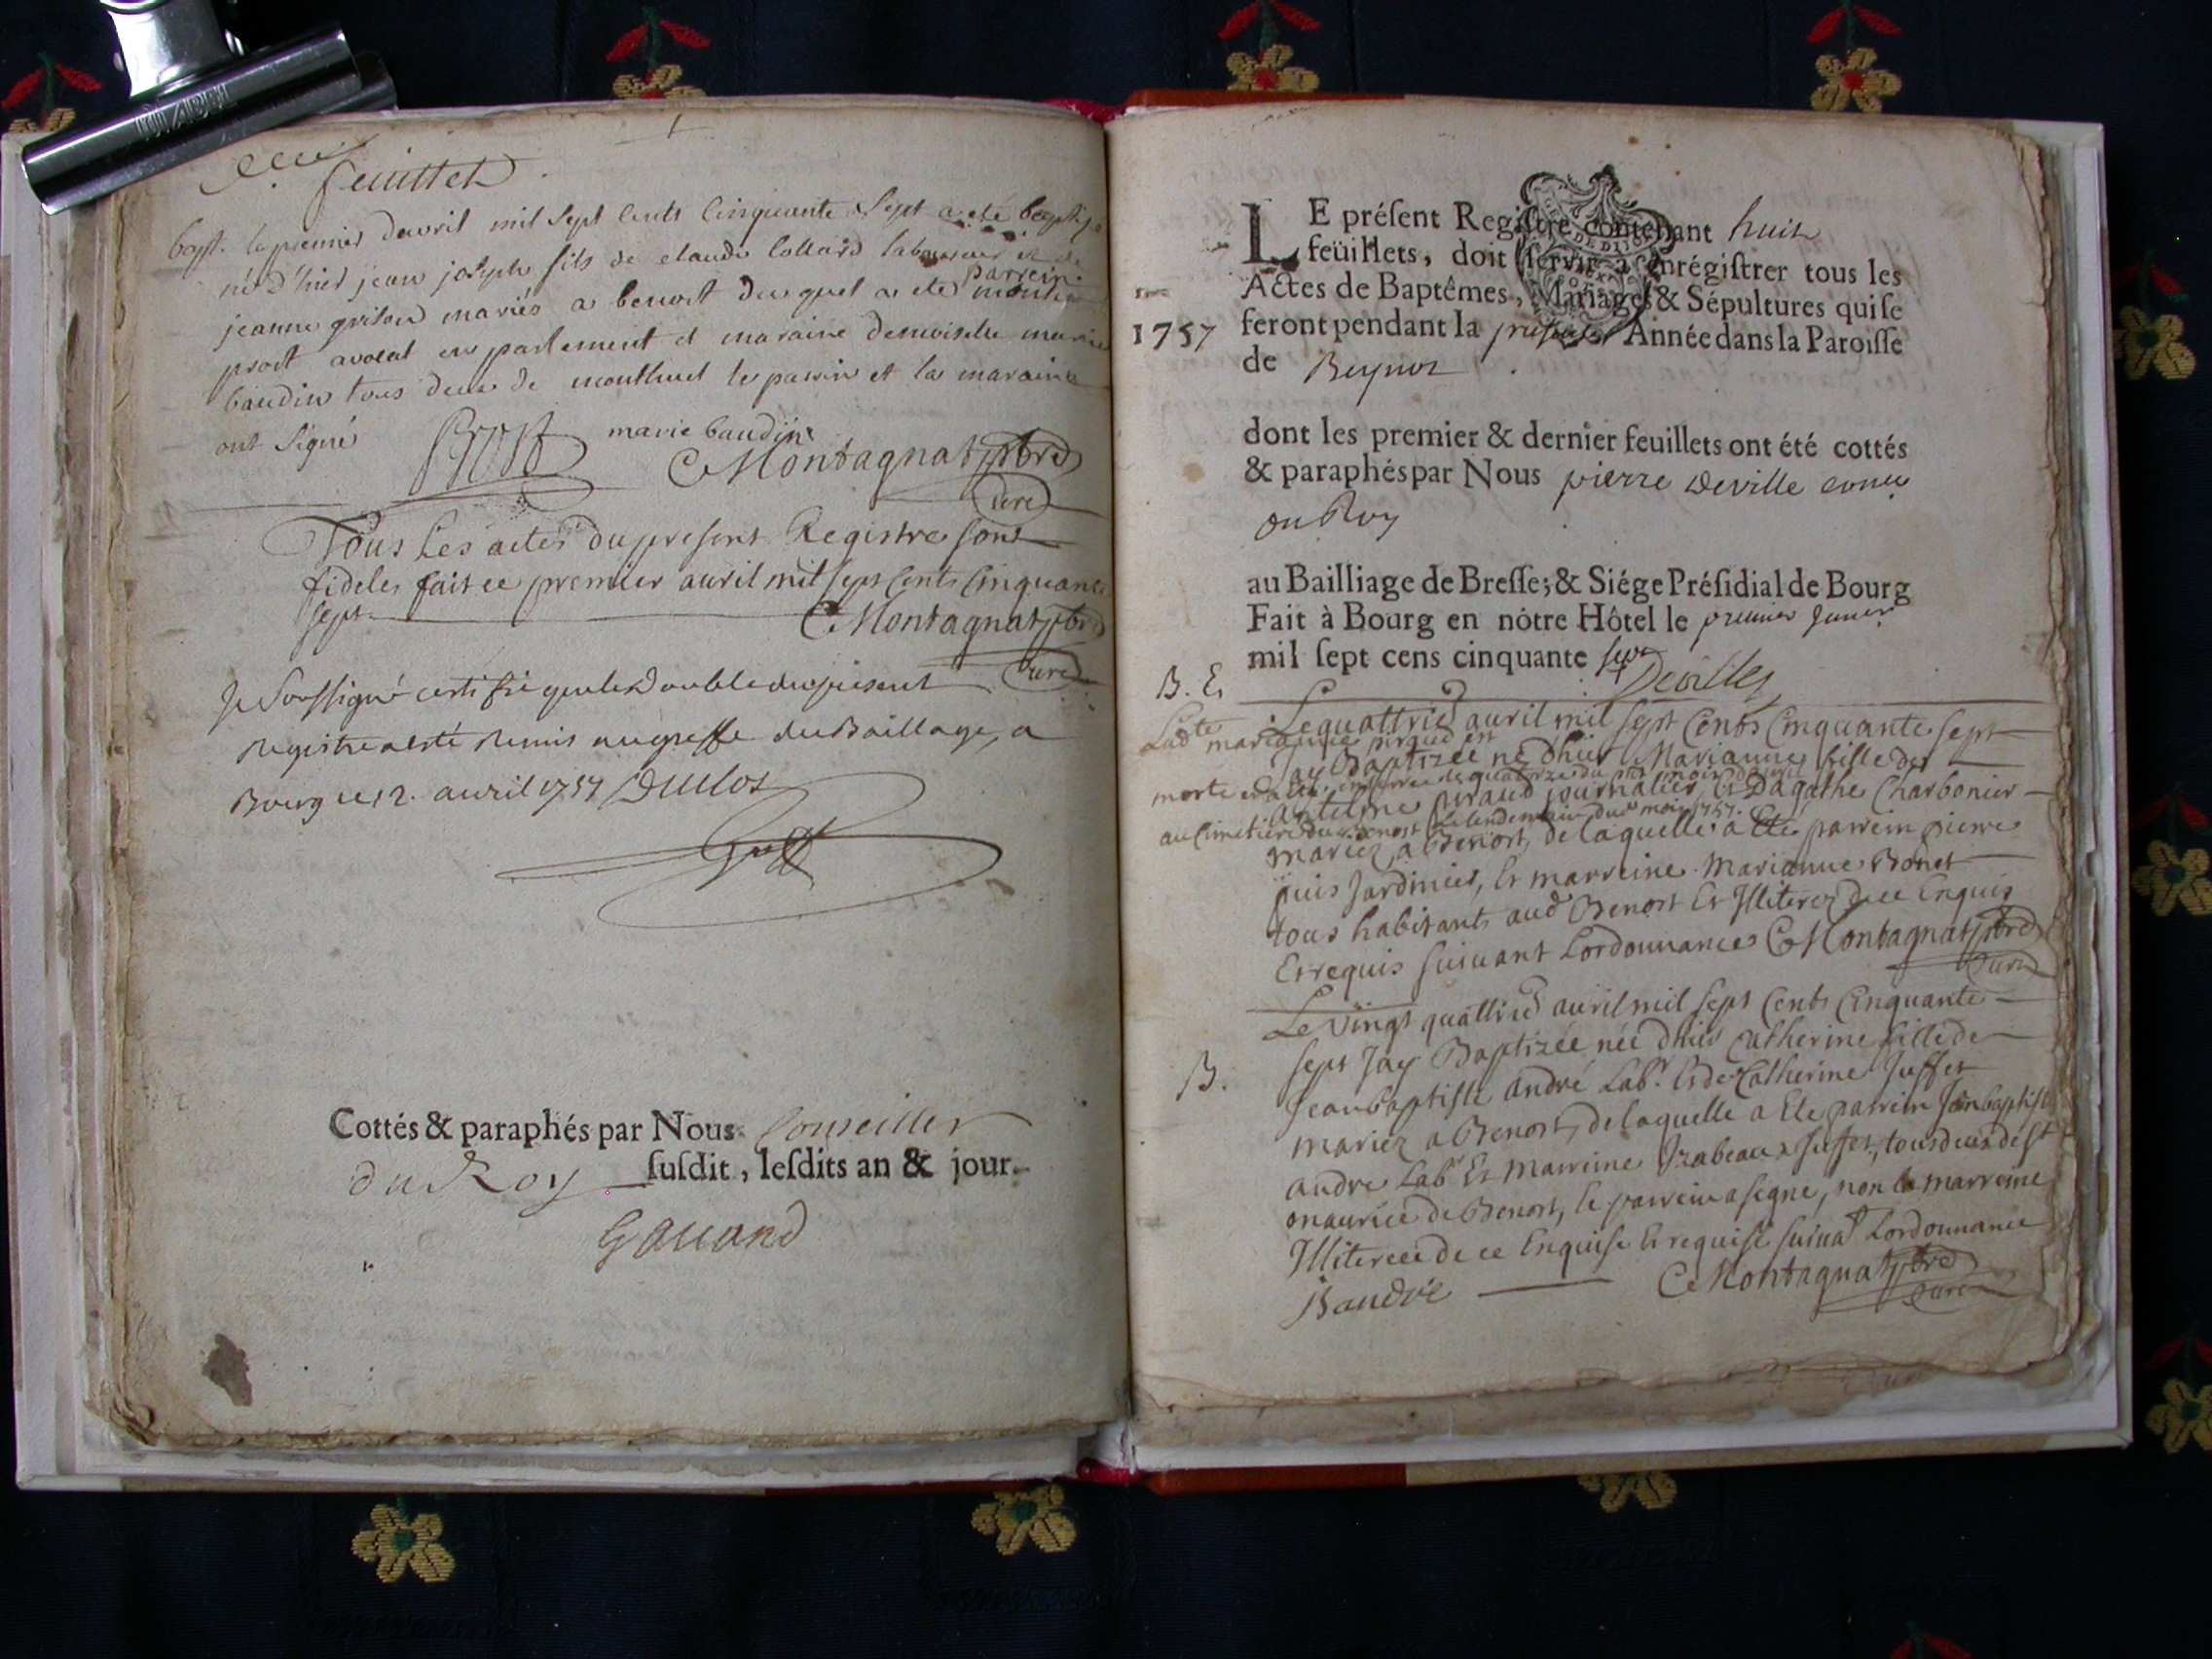 feuillet
bapt. le premier davril mil sept cents cinquante sept a eté baptisé
né d'hier jean joseph fils de claude collard laboureur et de
jeanne grilon mariés a benost du quel a ete parrein
prost avocat en parlement et maraine demoiselle marie
baudin tous deux de montluel le parrin et la maraine
ont signé Prost marie baudin
C Montagnat pbre
curé
Tous les actes du present Registre sont
fideles fait ce premier auril mil sept cents cinquante
sept C Montagnat pbre
curé
Je soussigné certifie que le double du present
registre a esté remis au greffe du Baillage, a
Bourg ce 12. auril 1757 Duclos
Cottés & paraphés par Nous Conseiller
du Roy susdit, lesdits an & jour.
Gauand
LE présent Registre contenant huit
feüillets, doit servir à enrégistrer tous les
Actes de Baptêmes, Mariages & Sépultures qui se
1757 feront pendant la presente Année dans la Paroisse
de Beynost
dont les premier & dernier feuillets ont été cottés
& paraphés par Nous pierre Deville coner
du Roy
au Bailliage de Bresse; & Siége Présidial de Bourg
Fait à Bourg en nôtre Hôtel le premier Janvier
mil sept cens cinquante sept Deville
B. E.
Le quattrie auril mil sept Cents Cinquante sept
Ladte marianne piraud est
Jay Baptizée né dhier Marianne fille de
morte et a été enterrée le quatorze du mois
antoine piraud journalier, Et Dagathe Charbonier
au Cimetiere du Benost Le lendemain du mois 1757.
mariez a Benost, de laquelle a Ete parrein pierre
puis Jardinier, Et marreine Marianne Bonet
tous habitants aud Benost Et Illiterez de ce Enquis
Et requis suivant Lordonnance C Montagnat pbre
curé
Le vingt quattrie auril mil sept Cents Cinquante
B. sept Jay Baptizée née dhier Catherine fille de
Jean baptiste andré Labr. Et de Catherine Juffet
mariez a Benost, de laquelle a Ete parrein Jean baptiste
andre Labr Et Marreine Izabeau Juffet, tous deux de st
maurice de Benost, le parrein a signé, non la marreine
Illiterée de ce Enquise Et requise suivat Lordonnance
JB andré C Montagnat pbre
curé